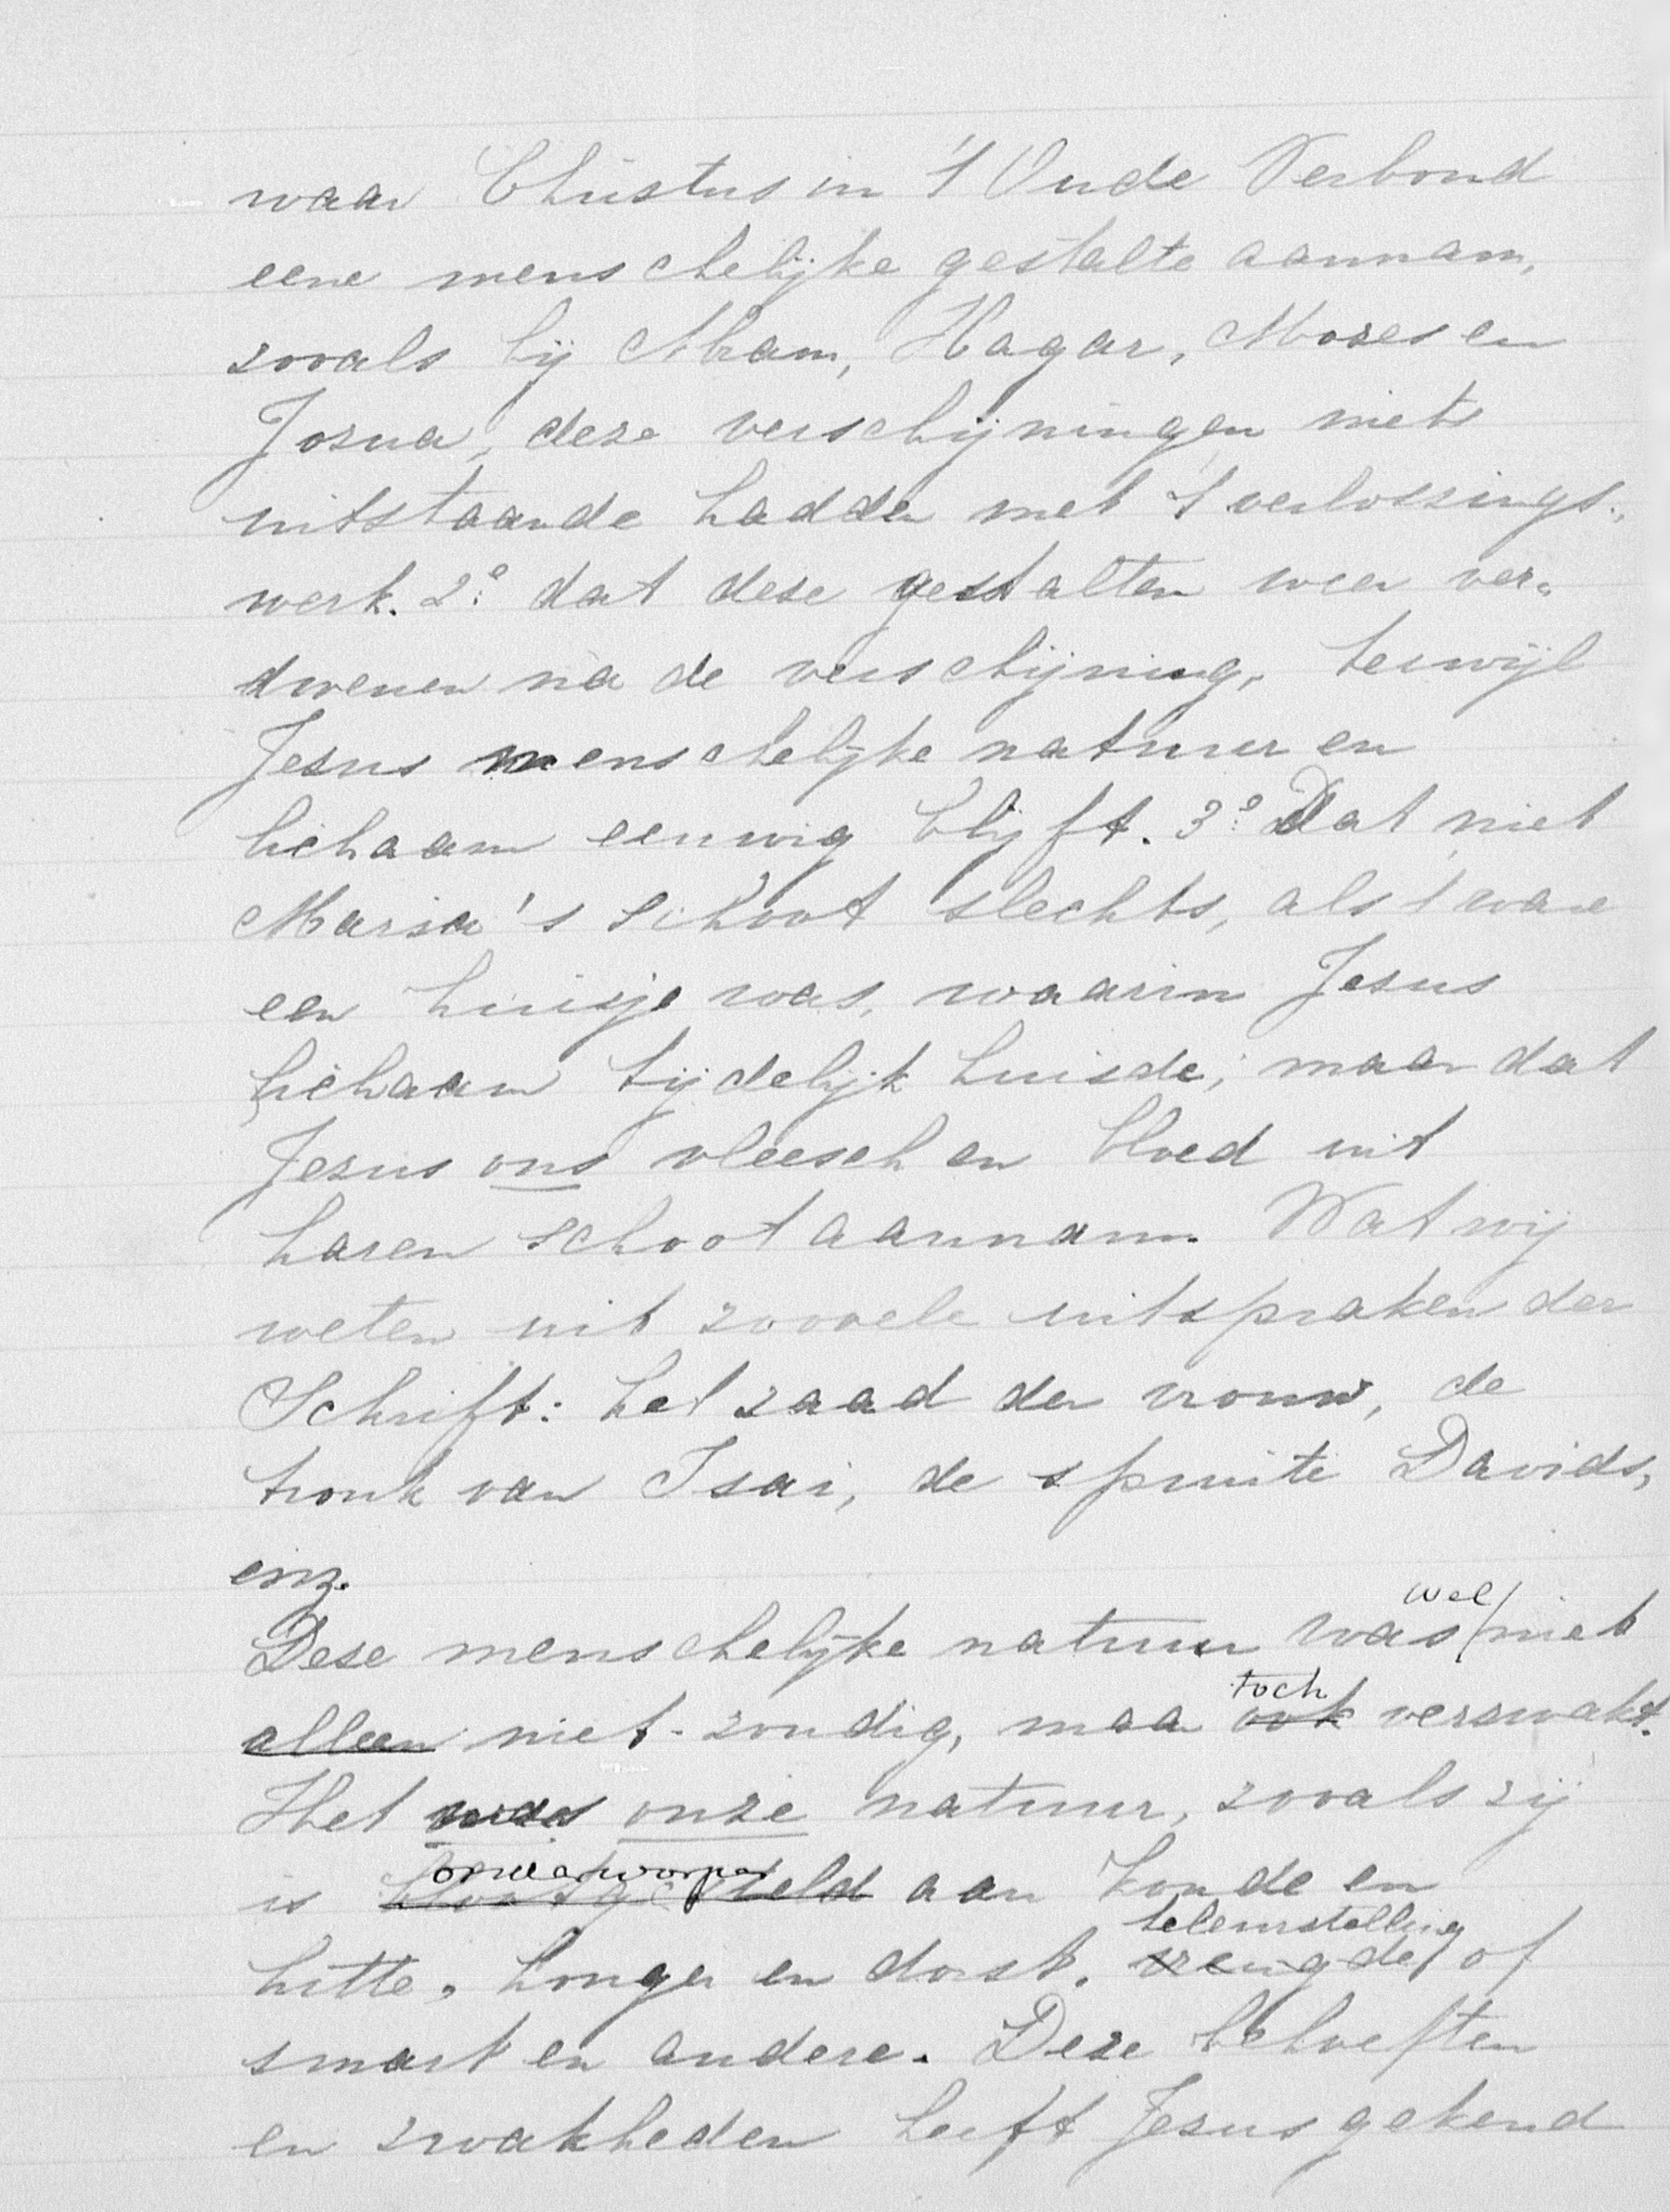 waar Christus in 't Oude Verbond
eene menschelijke gestalte aannam,
zooals bij Abram, Hagar, Mozes en
Jozua, deze verschijningen niets
uitstaande hadden met 't verlossings-
werk. 2º dat deze gestalten weer ver-
dwenen na de verschijning, terwijl
Jezus menschelijke natuur en
lichaam eeuwig blijft. 3º Dat niet
Maria's schoot slechts, als 't ware
een huisje was, waarin Jesus
lichaam tijdelijk huisde; maar dat
Jezus ons vleesch en bloed uit
haren schoot aannam. Wat wij
weten uit zoovele uitspraken der
Schrift: het zaad der vrouw, de
tronk van Isaï, de spruite Davids,
enz.
wel
Deze menschelijke natuur was niet
toch
alleen niet-zondig, maar ook verzwakt.
Het was onze natuur, zooals zij
onderworpen
is blootgesteld aan koude en
teleurstelling
hitte, honger en dorst, vreugde of
smart en andere. Deze behoeften
en zwakheden heeft Jezus gekend